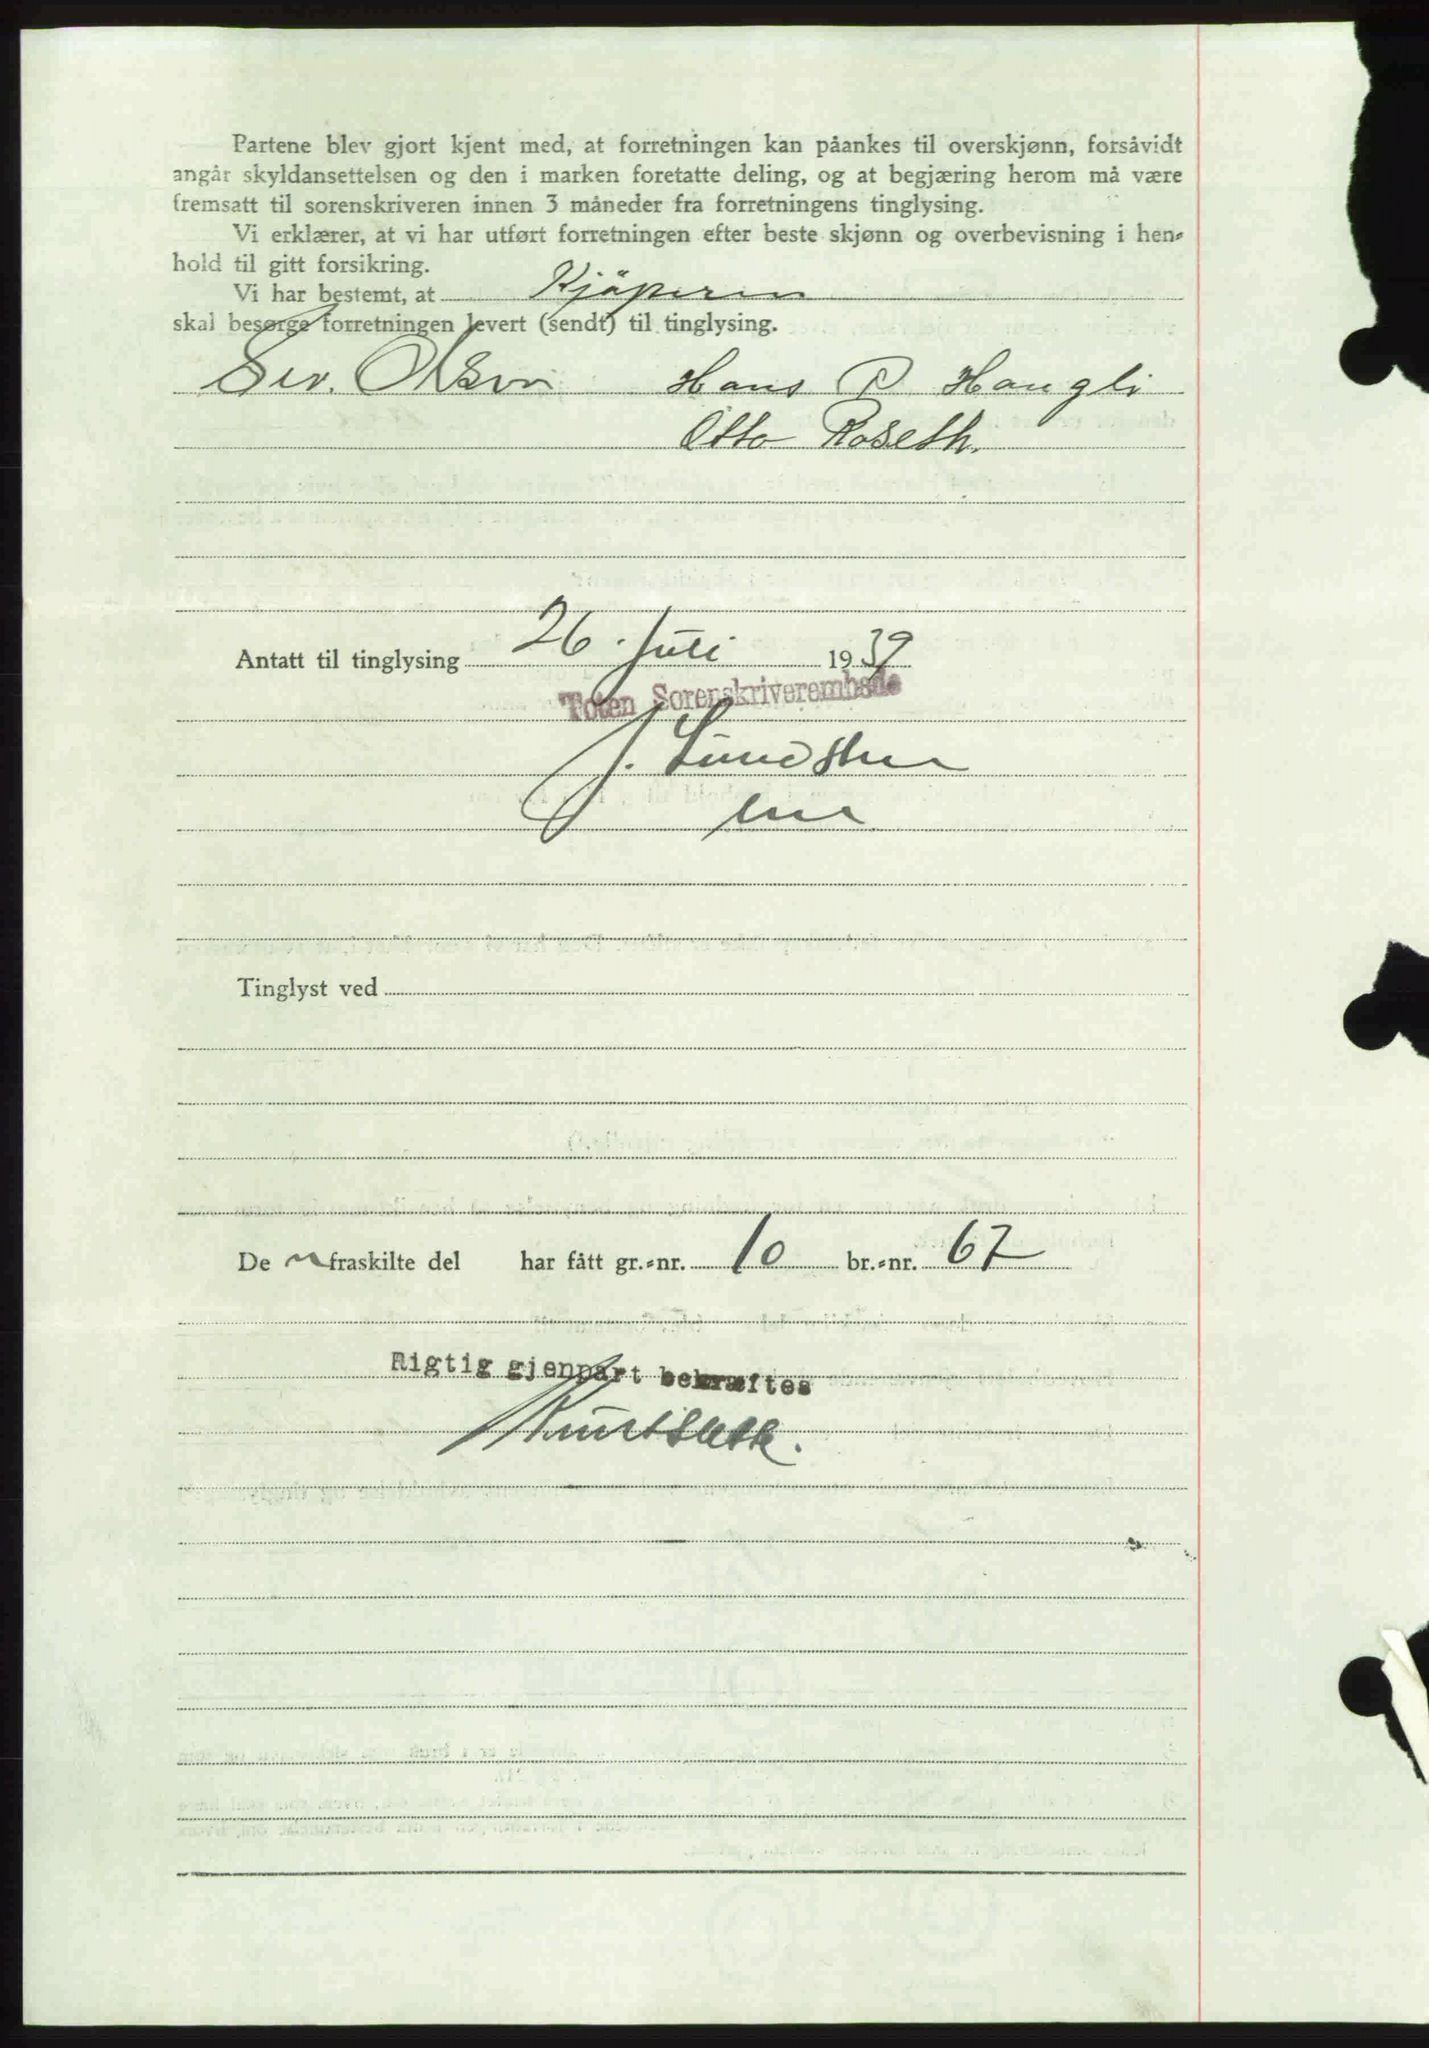 Partene blev gjort kjent med, at forretningen kan påankes til overskjønn, forsåvidt
angår skyldansettelsen og den i marken foretatte deling, og at begjæring herom må være
fremsatt til sorenskriveren innen 3 måneder fra forretningens tinglysing.
Vi erklærer, at vi har utført forretningen efter beste skjønn og overbevisning i hen-
hold til gitt forsikring.
Vi har bestemt, at Kjöperen
skal besørge forretningen levert (sendt) til tinglysing.
Sev. Olsen Hans P Haugli
Otto Roseth.
Antatt til tinglysing 26. Juli 1939
Toten Sorenskriverembede
J. Lundsten
Tinglyst ved
De n fraskilte del har fått gr.-nr. 10 br.-nr. 67
Rigtig gjenpart bekræftes